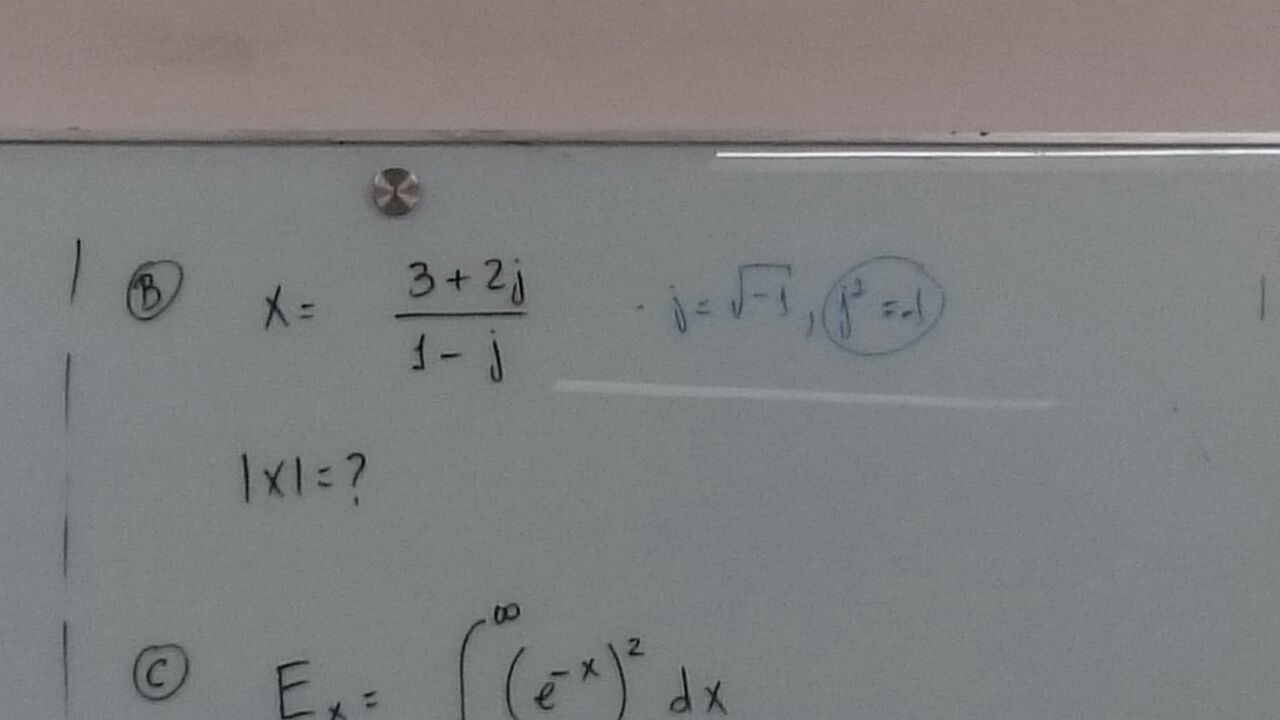 B X = (3 + 2j) / (1 - j) · j = √-1, j² = -1
|X| = ?
C Eₓ = ∫^∞ (e^-x)² dx